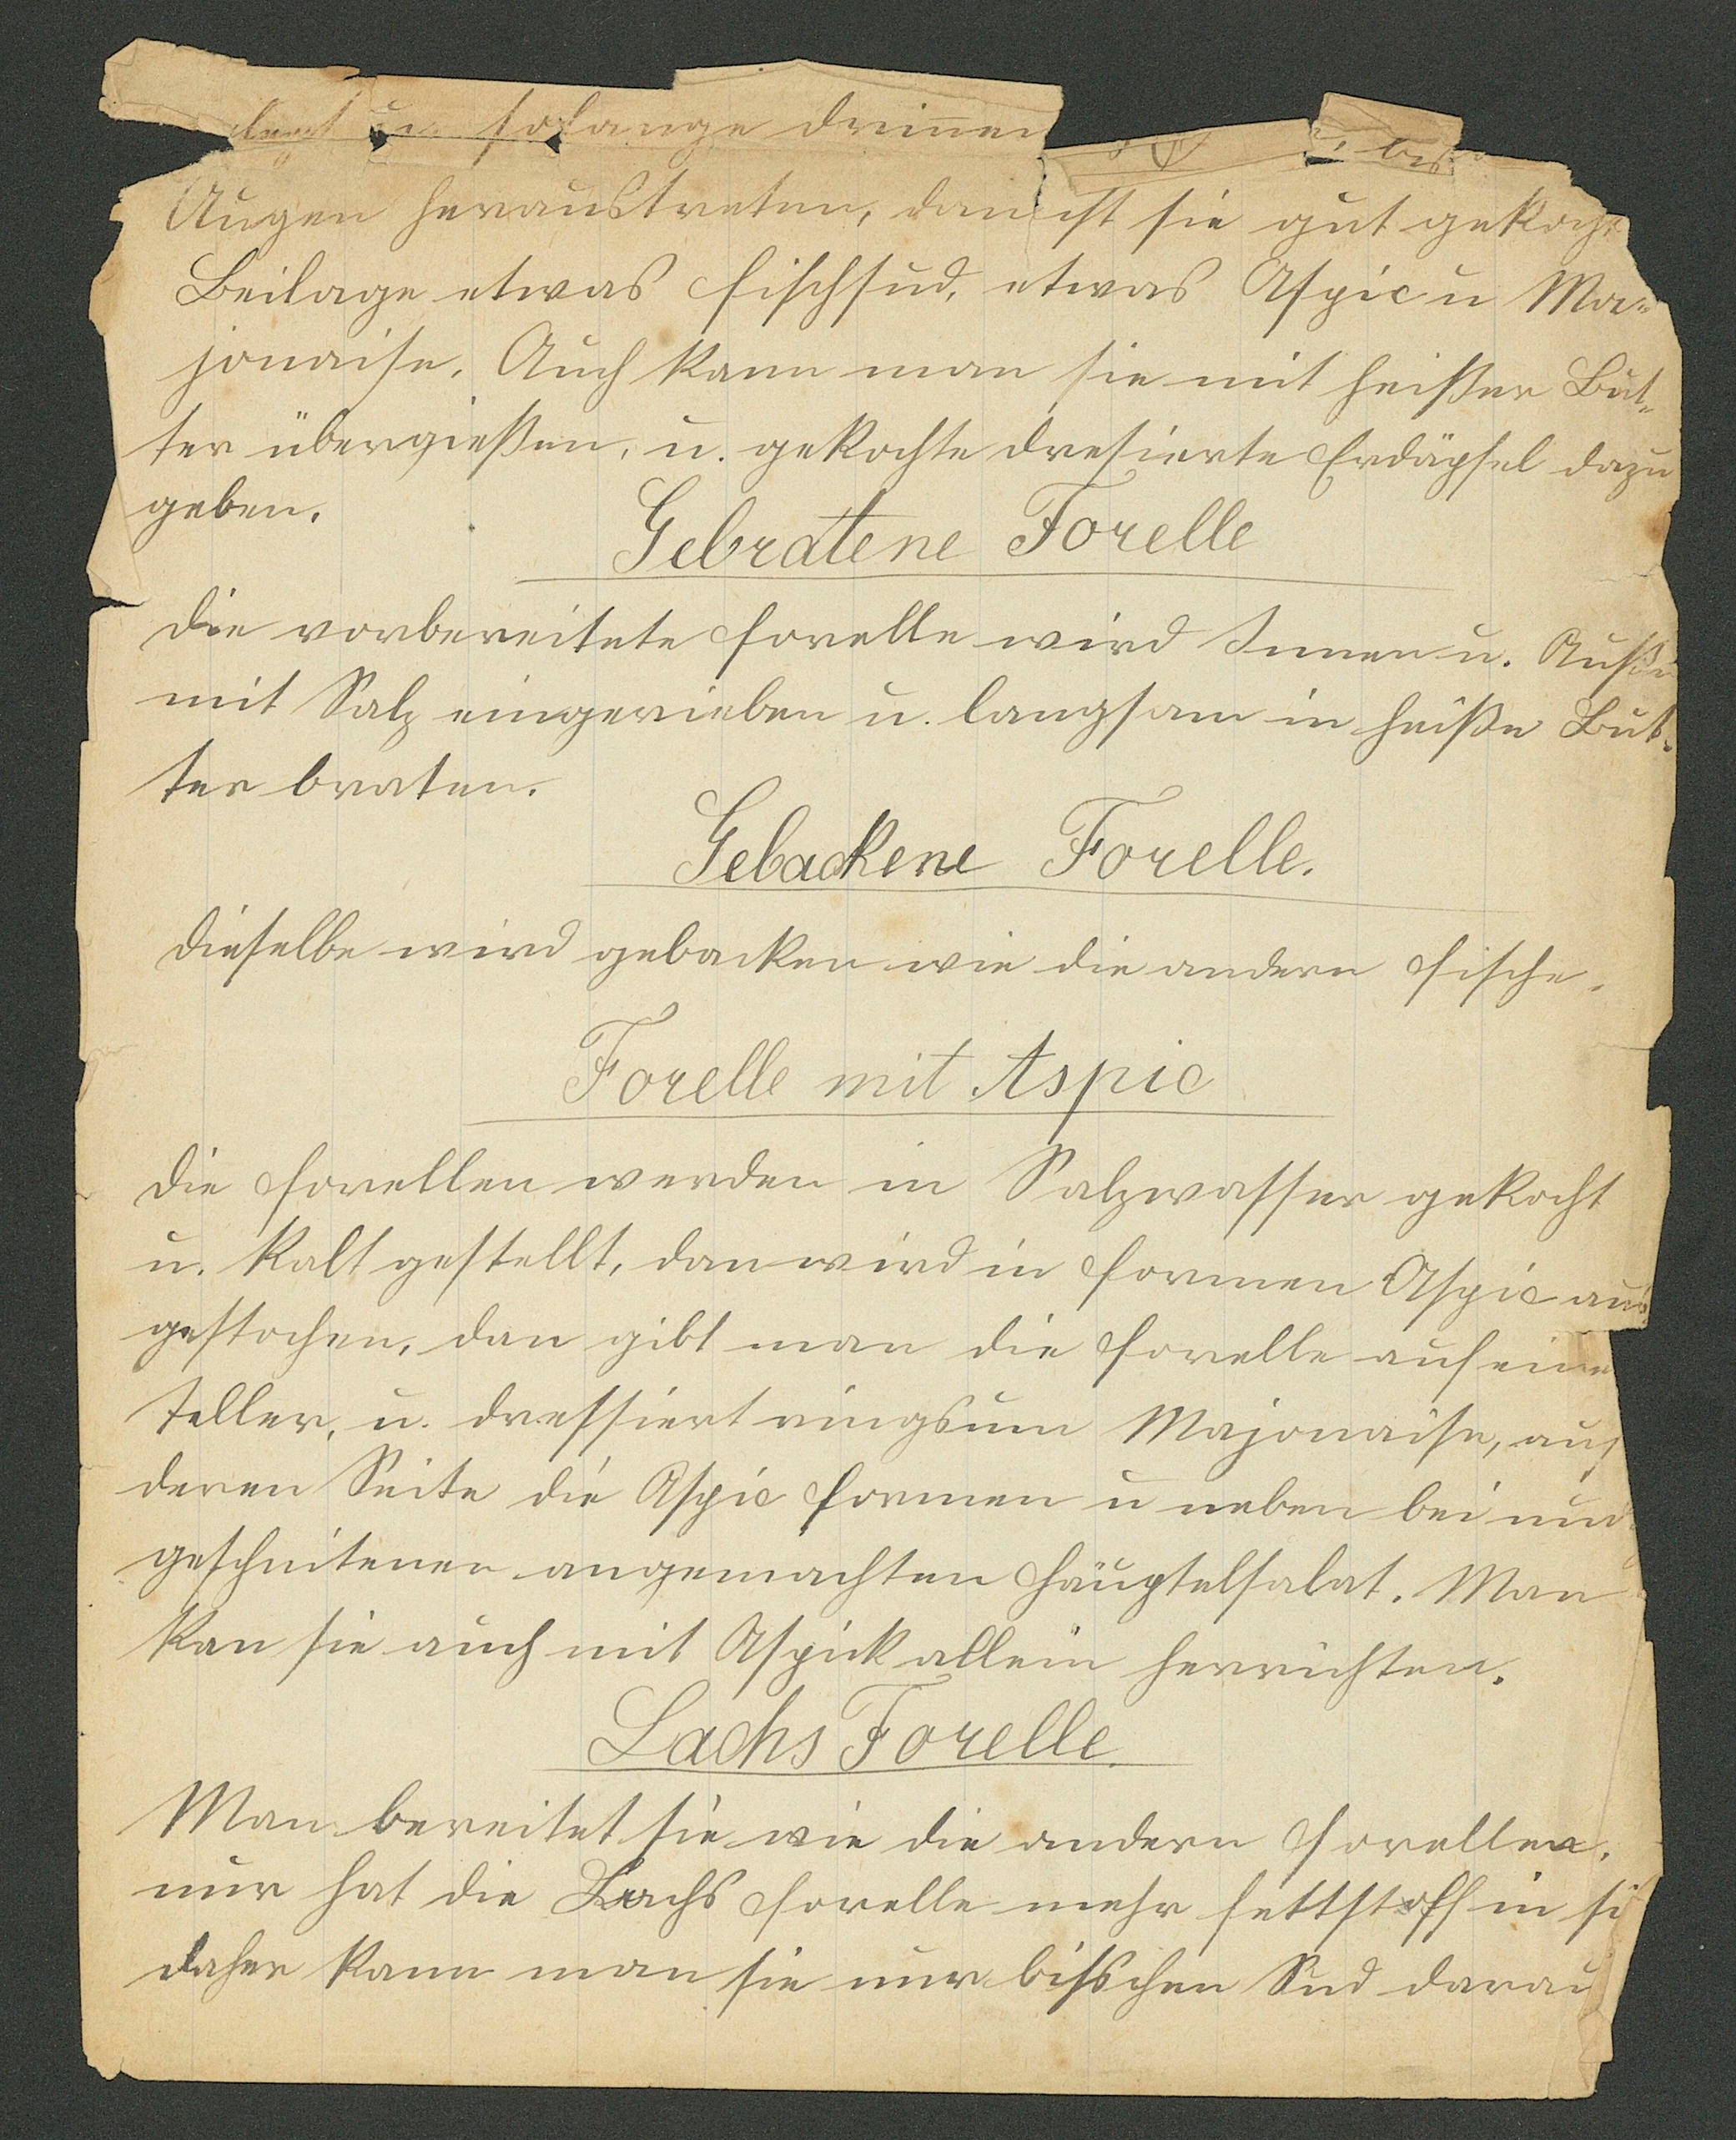 legt u. solange drinnen bis
Augen heraustreten, dan ist sie gut gekocht
Beilage etwas Fischsud, etwas Aspic u Ma-
jonaise. Auch kann man sie mit heißer But-
ter übergießen, u. gekochte dresierte Erdäpfel dazu
geben.
Gebratene Forelle
Die vorbereitete Forelle wird Innen u. Außen
mit Salz eingerieben u. langsam in heiße But-
ter braten.
Gebackene Forelle.
Dieselbe wird gebacken wie die andern Fische.
Forelle mit Aspic
Die Forellen werden in Salzwasser gekocht
u. kalt gestellt, dan wird in Formen Aspic aus
gestochen, dan gibt man die Forelle auf eine
Teller, u. dressiert ringsum Majonaise, auf
deren Seite die Aspic Formen u neben bei
geschnitenen angemachten Häuptelsalat. Man
kan sie auch mit Aspick allein herrichten.
Lachs Forelle.
Man bereitet sie wie die andern Forellen,
nur hat die Lachs Forelle mehr Fettstoff in si
daher kann man sie nur bisschen Sud darau